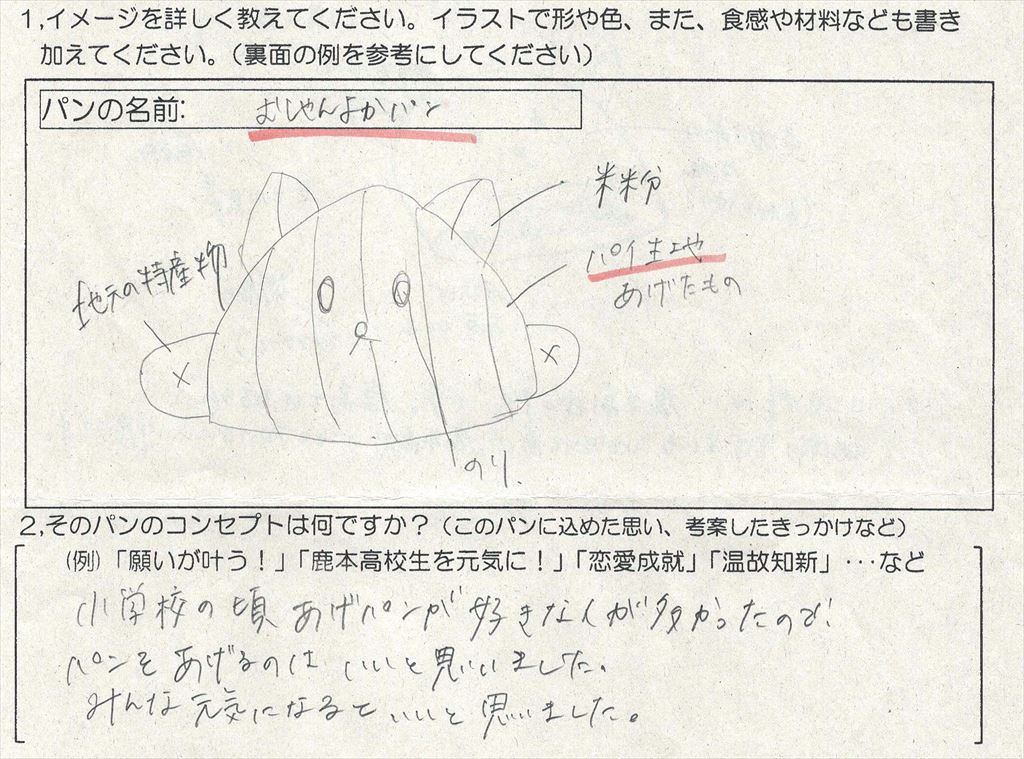 1,イメージを詳しく教えてください。イラストで形や色、また、食感や材料なども書き
加えてください。(裏面の例を参考にしてください)
パンの名前: むしゃんよかパン
米粉
地元の特産物
パイ生地
あげたもの
のり、
2,そのパンのコンセプトは何ですか?(このパンに込めた思い、考案したきっかけなど)
(例)「願いが叶う!」「鹿本高校生を元気に!」「恋愛成就」「温故知新」・・・など
小学校の頃 あげパンが好きな人が多かったので、
パンをあげるのは いいと思いいました。
みんな元気になるといいと思いました。